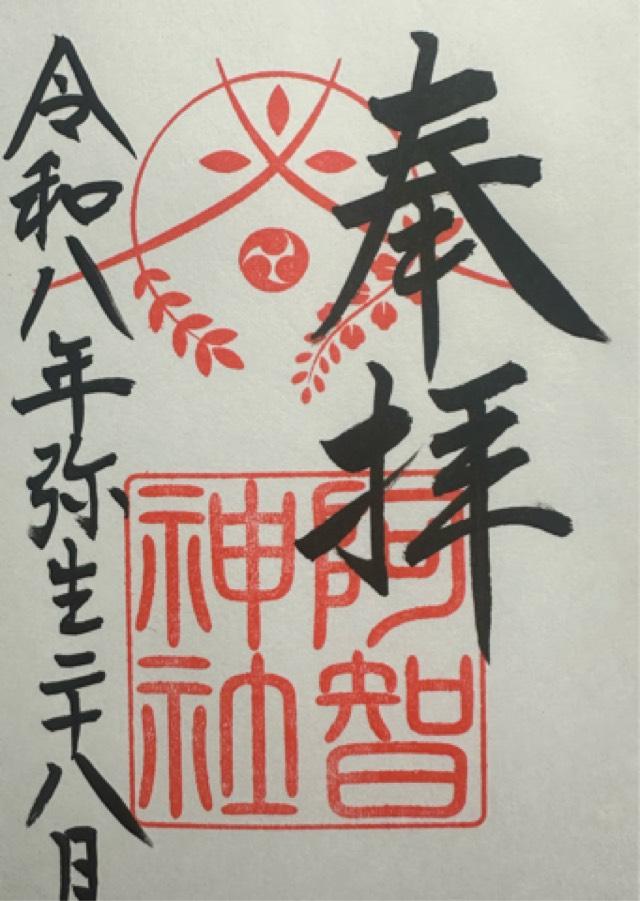 奉拝
阿智
神社
令和八年弥生二十八日